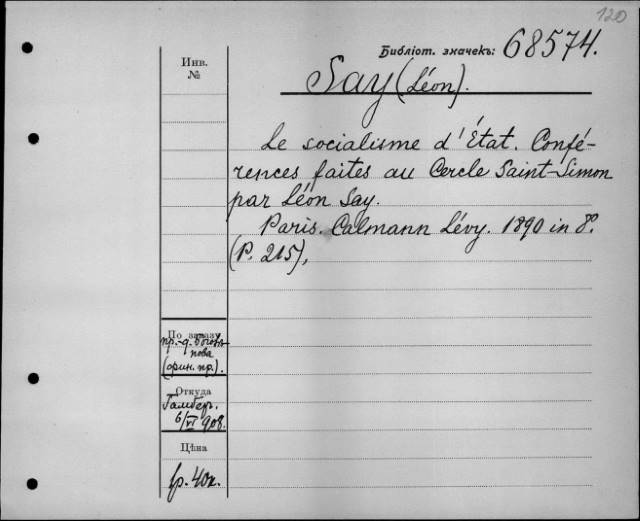 120
Библіот. значекъ: 68574.
Инв.
№
Say (Léon).
Le socialisme d'État. Confé-
rences faites au Cercle Saint-Simon
par Léon Say.
Paris. Calmann Lévy. 1890 in 8º.
(P. 215),
По заказу
пр.-д. Богол-
пова
(орин. пр.).
Откуда
Гамбер.
6/VI 908.
Цѣна
1р. 40к.